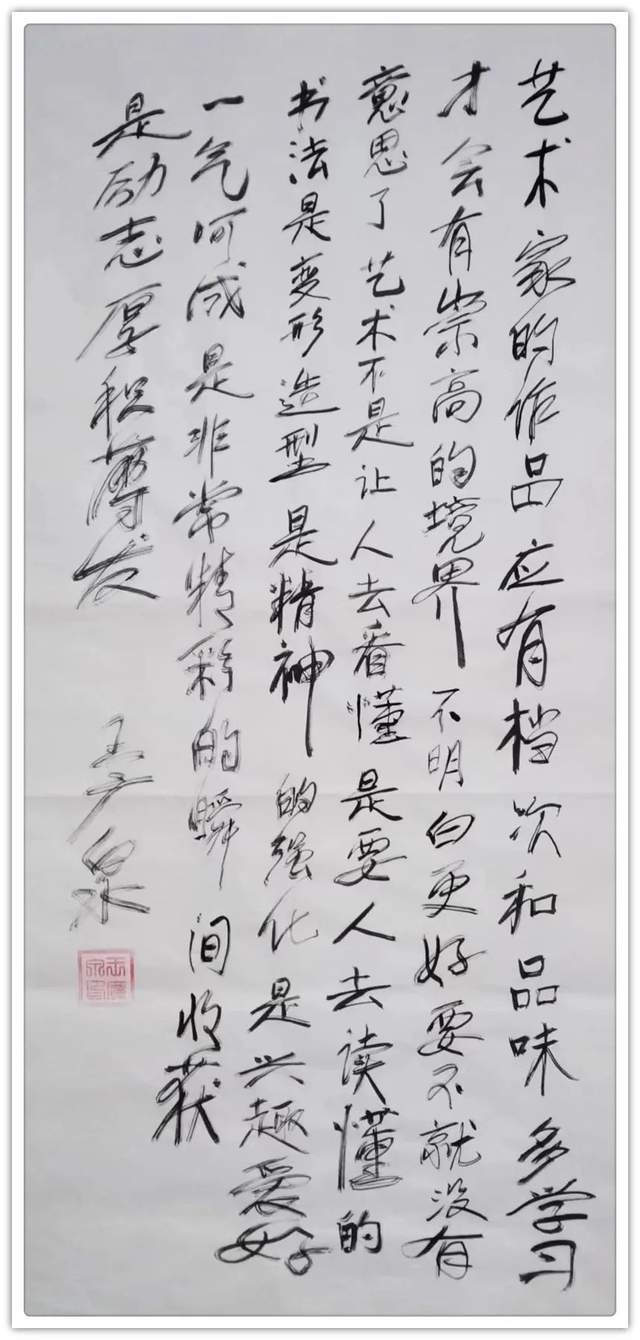 艺术家的作品应有档次和品味多学习
才会有崇高的境界不明白更好要不就没有
意思了艺术不是让人去看懂是要人去读懂的
书法是变形造型是精神的强化是兴趣爱好
一气呵成是非常精彩的瞬间收获
是励志厚积薄发
王广泉